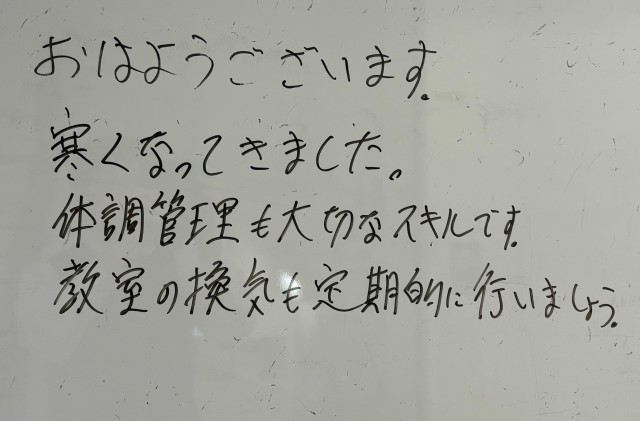 おはようございます。
寒くなってきました。
体調管理も大切なスキルです。
教室の換気も定期的に行いましょう。